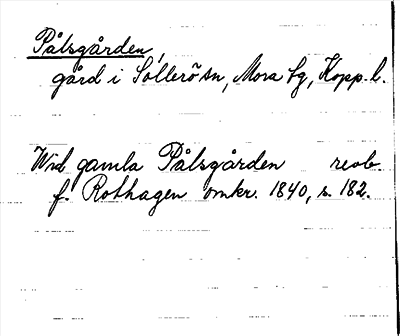 Pålsgården,
gård i Sollerö sn, Mora tg, Kopp. l.
Wid gamla Pålsgården reob.
f. Rothagen omkr. 1840, s. 182.